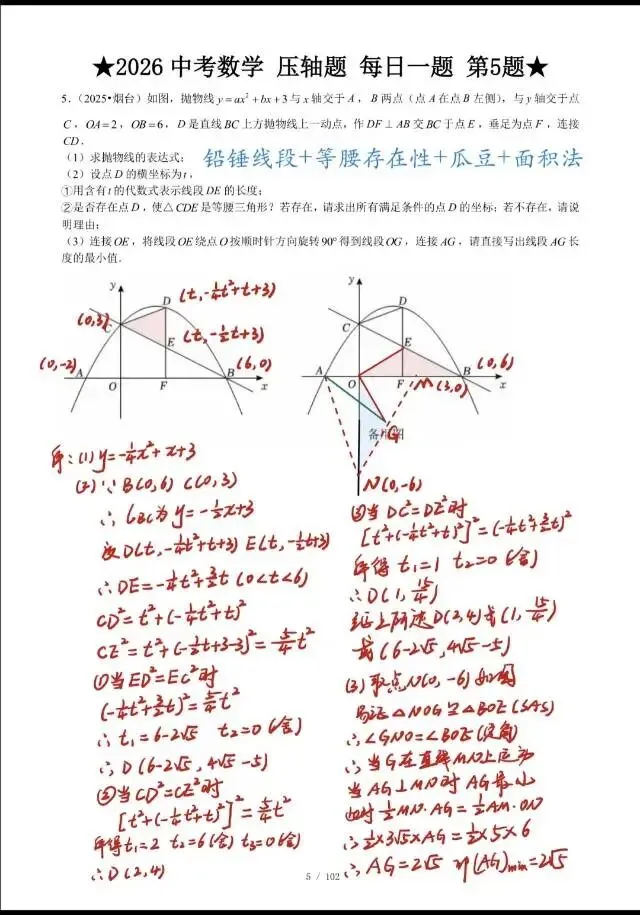 ★2026 中考数学 压轴题 每日一题 第5题★
5.（2025•烟台）如图，抛物线 y=ax²+bx+3 与 x 轴交于 A，B 两点（点 A 在点 B 左侧），与 y 轴交于点
C，OA=2，OB=6，D 是直线 BC 上方抛物线上一动点，作 DF⊥AB 交 BC 于点 E，垂足为点 F，连接
CD．
（1）求抛物线的表达式；
铅锤线段+等腰存在性+瓜豆+面积法
（2）设点 D 的横坐标为 t，
①用含有 t 的代数式表示线段 DE 的长度；
②是否存在点 D，使△CDE 是等腰三角形？若存在，请求出所有满足条件的点 D 的坐标；若不存在，请说
明理由；
（3）连接 OE，将线段 OE 绕点 O 按顺时针方向旋转 90° 得到线段 OG，连接 AG，请直接写出线段 AG 长
度的最小值．
y
D
(t, -1/4t²+t+3)
(0,3)
C
E
(t, -1/2t+3)
(0,-2)
(6,0)
A
O
F
B
x
y
D
C
E
(0,6)
A
O
F
M(3,0)
B
x
备用图
G
N(0,-6)
解:(1) y=-1/4x²+x+3
(2)∵B(0,6) C(0,3)
∴lBC为 y=-1/2x+3
设D(t, -1/4t²+t+3) E(t, -1/2t+3)
∴DE=-1/4t²+3/2t (0<t<6)
CD²=t²+(-1/4t²+t)²
CE²=t²+(-1/2t+3-3)²=5/4t²
①当ED²=EC²时
(-1/4t²+3/2t)²=5/4t²
∴t₁=6-2√5 t₂=0(舍)
∴D(6-2√5, 4√5-5)
②当CD²=CE²时
[t²+(-1/4t²+t)²]²=5/4t²
解得t₁=2 t₂=6(舍) t₃=0(舍)
∴D(2,4)
③当DC²=DE²时
[t²+(-1/4t²+t)²]²=(-1/4t²+3/2t)²
解得 t₁=1 t₂=0(舍)
∴D(1, 15/4)
综上所述D(2,4)或(1, 15/4)
或(6-2√5, 4√5-5)
(3)取点N(0,-6)如图
易证△NOG≌△BOE(SAS)
∴∠GNO=∠BOE(定角)
∴当G在直线MN上运动
当AG⊥MN时 AG最小
此时1/2MN·AG=1/2AM·ON
∴1/2×3√5×AG=1/2×5×6
∴AG=2√5 即(AG)min=2√5
5 / 102